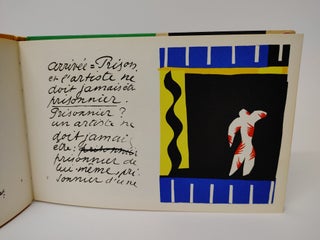 arrivée = Prison,
et l'artiste ne
doit jamais être
prisonnier.
Prisonnier ?
un artiste ne
doit jamais
être : prisonnier
prisonnier de
lui même, pri-
sonnier d'une